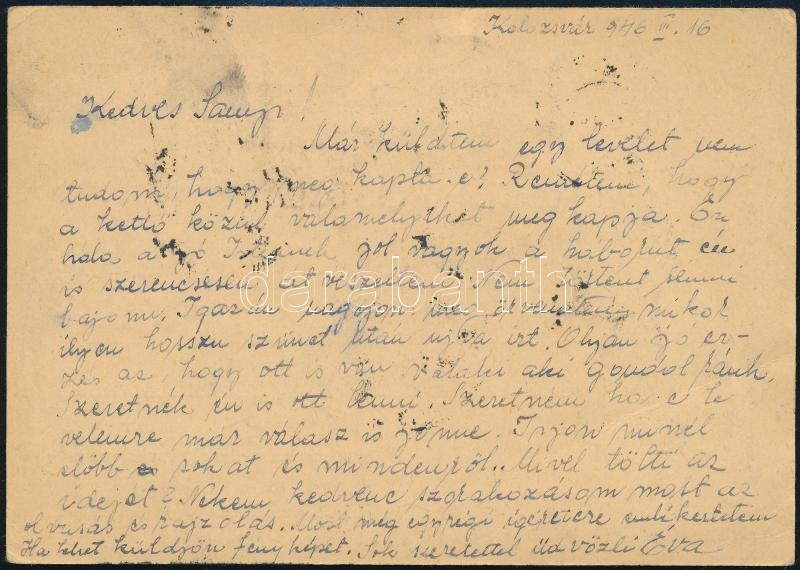 Kolozsvár 946 III. 16
Kedves Samy!
Már küldtem egy levelet nem
tudom, hogy meg kapta-e? Remélem, hogy
a kettő közül valamelyiket meg kapja. Én
hála a jó Istennek jól vagyok a háborut én
is szerencsésen át vészeltem. Nem történt semmi
bajom. Igazán nagyon meg örvendtem mikor
ilyen hosszu szünet után ujra irt. Olyan jó ér-
zés az, hogy ott is van valaki aki gondol ránk.
Szeretnék én is ott lenni. Szeretném ha e le
velemre már válasz is jönne. Irjon minél
előbb és sokat és mindenről. Mivel tölti az
idejét? Nekem kedvenc szorakozásom most az
olvasás és rajzolás. Most még egy régi igéretére emlékeztetem
Ha lehet küldjön fenyképet. Sok szeretettel üdvözli Éva
darabanth